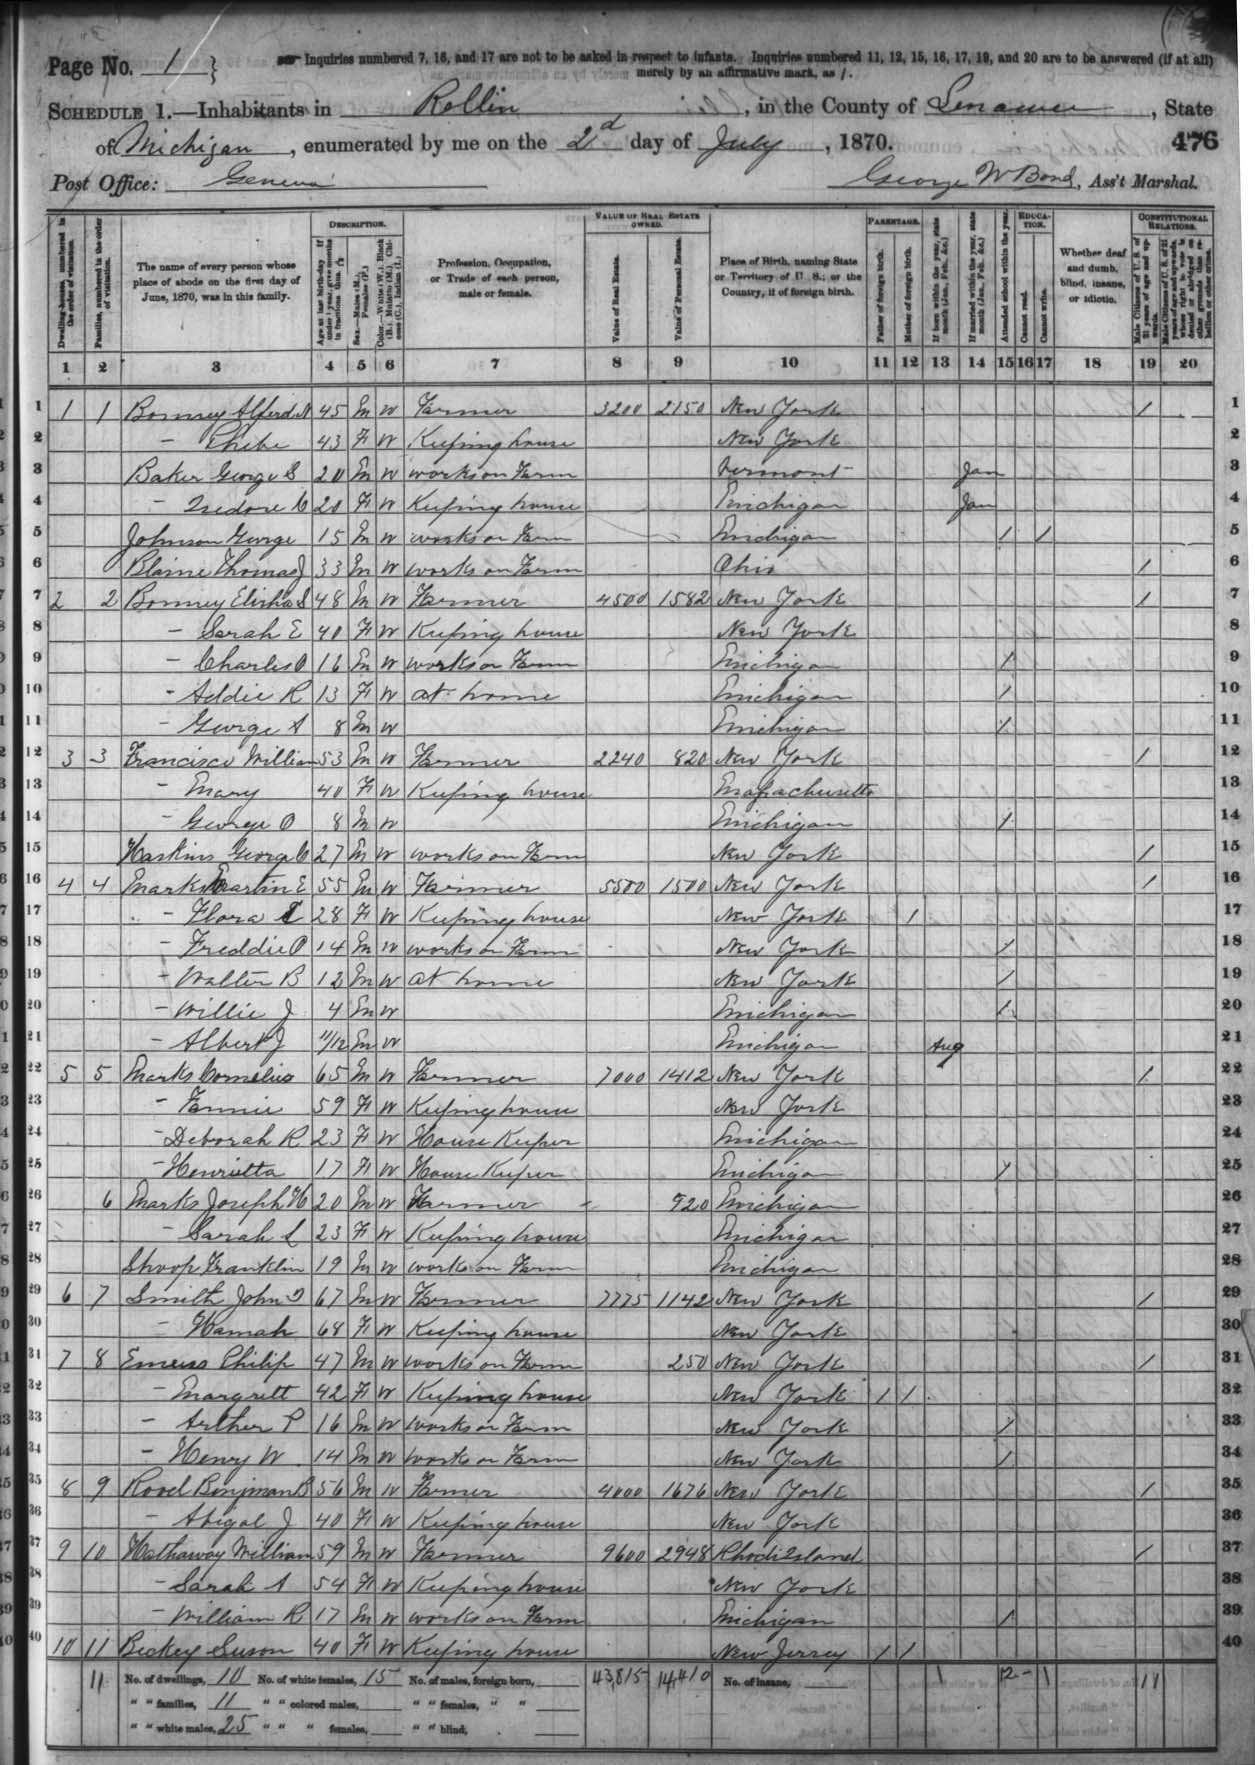 Page No. 1 } Inquiries numbered 7, 16, and 17 are not to be asked in respect to infants. Inquiries numbered 11, 12, 15, 16, 17, 19, and 20 are to be answered (if at all)
merely by an affirmative mark, as /.
SCHEDULE 1.—Inhabitants in Rollin, in the County of Lenawee, State
of Michigan, enumerated by me on the 2d day of July, 1870. 476
Post Office: Geneva George W Bond, Ass't Marshal.
Dwelling-houses, numbered in the order of visitation.
Families, numbered in the order of visitation.
The name of every person whose place of abode on the first day of June, 1870, was in this family.
DESCRIPTION.
Age at last birth-day. If under 1 year, give months in fractions, thus, 3/12
Sex.—Males (M.), Females (F.)
Color.—White (W.), Black (B.), Mulatto (M.), Chinese (C.), Indian (I.)
Profession, Occupation, or Trade of each person, male or female.
VALUE OF REAL ESTATE OWNED.
Value of Real Estate.
Value of Personal Estate.
Place of Birth, naming State or Territory of U. S.; or the Country, if of foreign birth.
PARENTAGE.
Father of foreign birth.
Mother of foreign birth.
If born within the year, state month (Jan., Feb. &c.)
If married within the year, state month (Jan., Feb. &c.)
Attended school within the year.
EDUCATION.
Cannot read.
Cannot write.
Whether deaf and dumb, blind, insane, or idiotic.
CONSTITUTIONAL RELATIONS.
Male Citizens of U. S. of 21 years of age and upwards.
Male Citizens of U. S. of 21 years of age and upwards, whose right to vote is denied or abridged on other grounds than rebellion or other crime.
1 2 3 4 5 6 7 8 9 10 11 12 13 14 15 16 17 18 19 20
1 1 1 Bonney Alferd N 45 M W Farmer 3200 2150 New York / 1
2 – Phebe 43 F W Keeping house New York 2
3 Baker George S 20 M W works on Farm Vermont Jan 3
4 – Isedore C 20 F W Keeping house Michigan Jan 4
5 Johnson George 15 M W works on Farm Michigan / / 5
6 Blaine Thomas J 33 M W works on Farm Ohio / 6
7 2 2 Bonney Elisha S 48 M W Farmer 4500 1582 New York / 7
8 – Sarah E 40 F W Keeping house New York 8
9 – Charles O 16 M W works on Farm Michigan / 9
10 – Addie R 13 F W at home Michigan / 10
11 – George A 8 M W Michigan / 11
12 3 3 Francisco William 53 M W Farmer 2240 820 New York / 12
13 – Mary 40 F W Keeping house Massachusetts 13
14 – George O 8 M W Michigan / 14
15 Haskins George C 27 M W works on Farm New York / 15
16 4 4 Marks Martin E 55 M W Farmer 5500 1500 New York / 16
17 – Flora 28 F W Keeping house New York / 17
18 – Freddie O 14 M W works on Farm New York / 18
19 – Walter B 12 M W at home New York / 19
20 – Willie J 4 M W Michigan / 20
21 – Albert J 11/12 M W Michigan Aug 21
22 5 5 Marks Cornelius 65 M W Farmer 7000 1412 New York / 22
23 – Fannie 59 F W Keeping house New York 23
24 – Deborah R 23 F W House Keeper Michigan 24
25 – Henrietta 17 F W House Keeper Michigan / 25
26 6 Marks Joseph H 20 M W Farmer 920 Michigan 26
27 – Sarah L 23 F W Keeping house Michigan 27
28 Shoop Franklin 19 M W works on Farm Michigan 28
29 6 7 Smith John D 67 M W Farmer 7775 1142 New York / 29
30 – Hannah 68 F W Keeping house New York 30
31 7 8 Emens Philip 47 M W works on Farm 250 New York / 31
32 – Margrett 42 F W Keeping house New York / / 32
33 – Arther P 16 M W works on Farm New York / 33
34 – Henry W 14 M W works on Farm New York / 34
35 8 9 Rood Benjman B 56 M W Farmer 4000 1676 New York / 35
36 – Abigal J 40 F W Keeping house New York 36
37 9 10 Hathaway William 59 M W Farmer 9600 2948 Rhode Island / 37
38 – Sarah A 54 F W Keeping house New York 38
39 – William R 17 M W works on Farm Michigan / 39
40 10 11 Beckey Suson 40 F W Keeping house New Jersey / / 40
11 No. of dwellings, 10 No. of white females, 15 No. of males, foreign born, 43,815 14,410 No. of insane, 1 12 – 1 11
" " families, 11 " " colored males, " " females, " "
" " white males, 25 " " " females, " " blind,